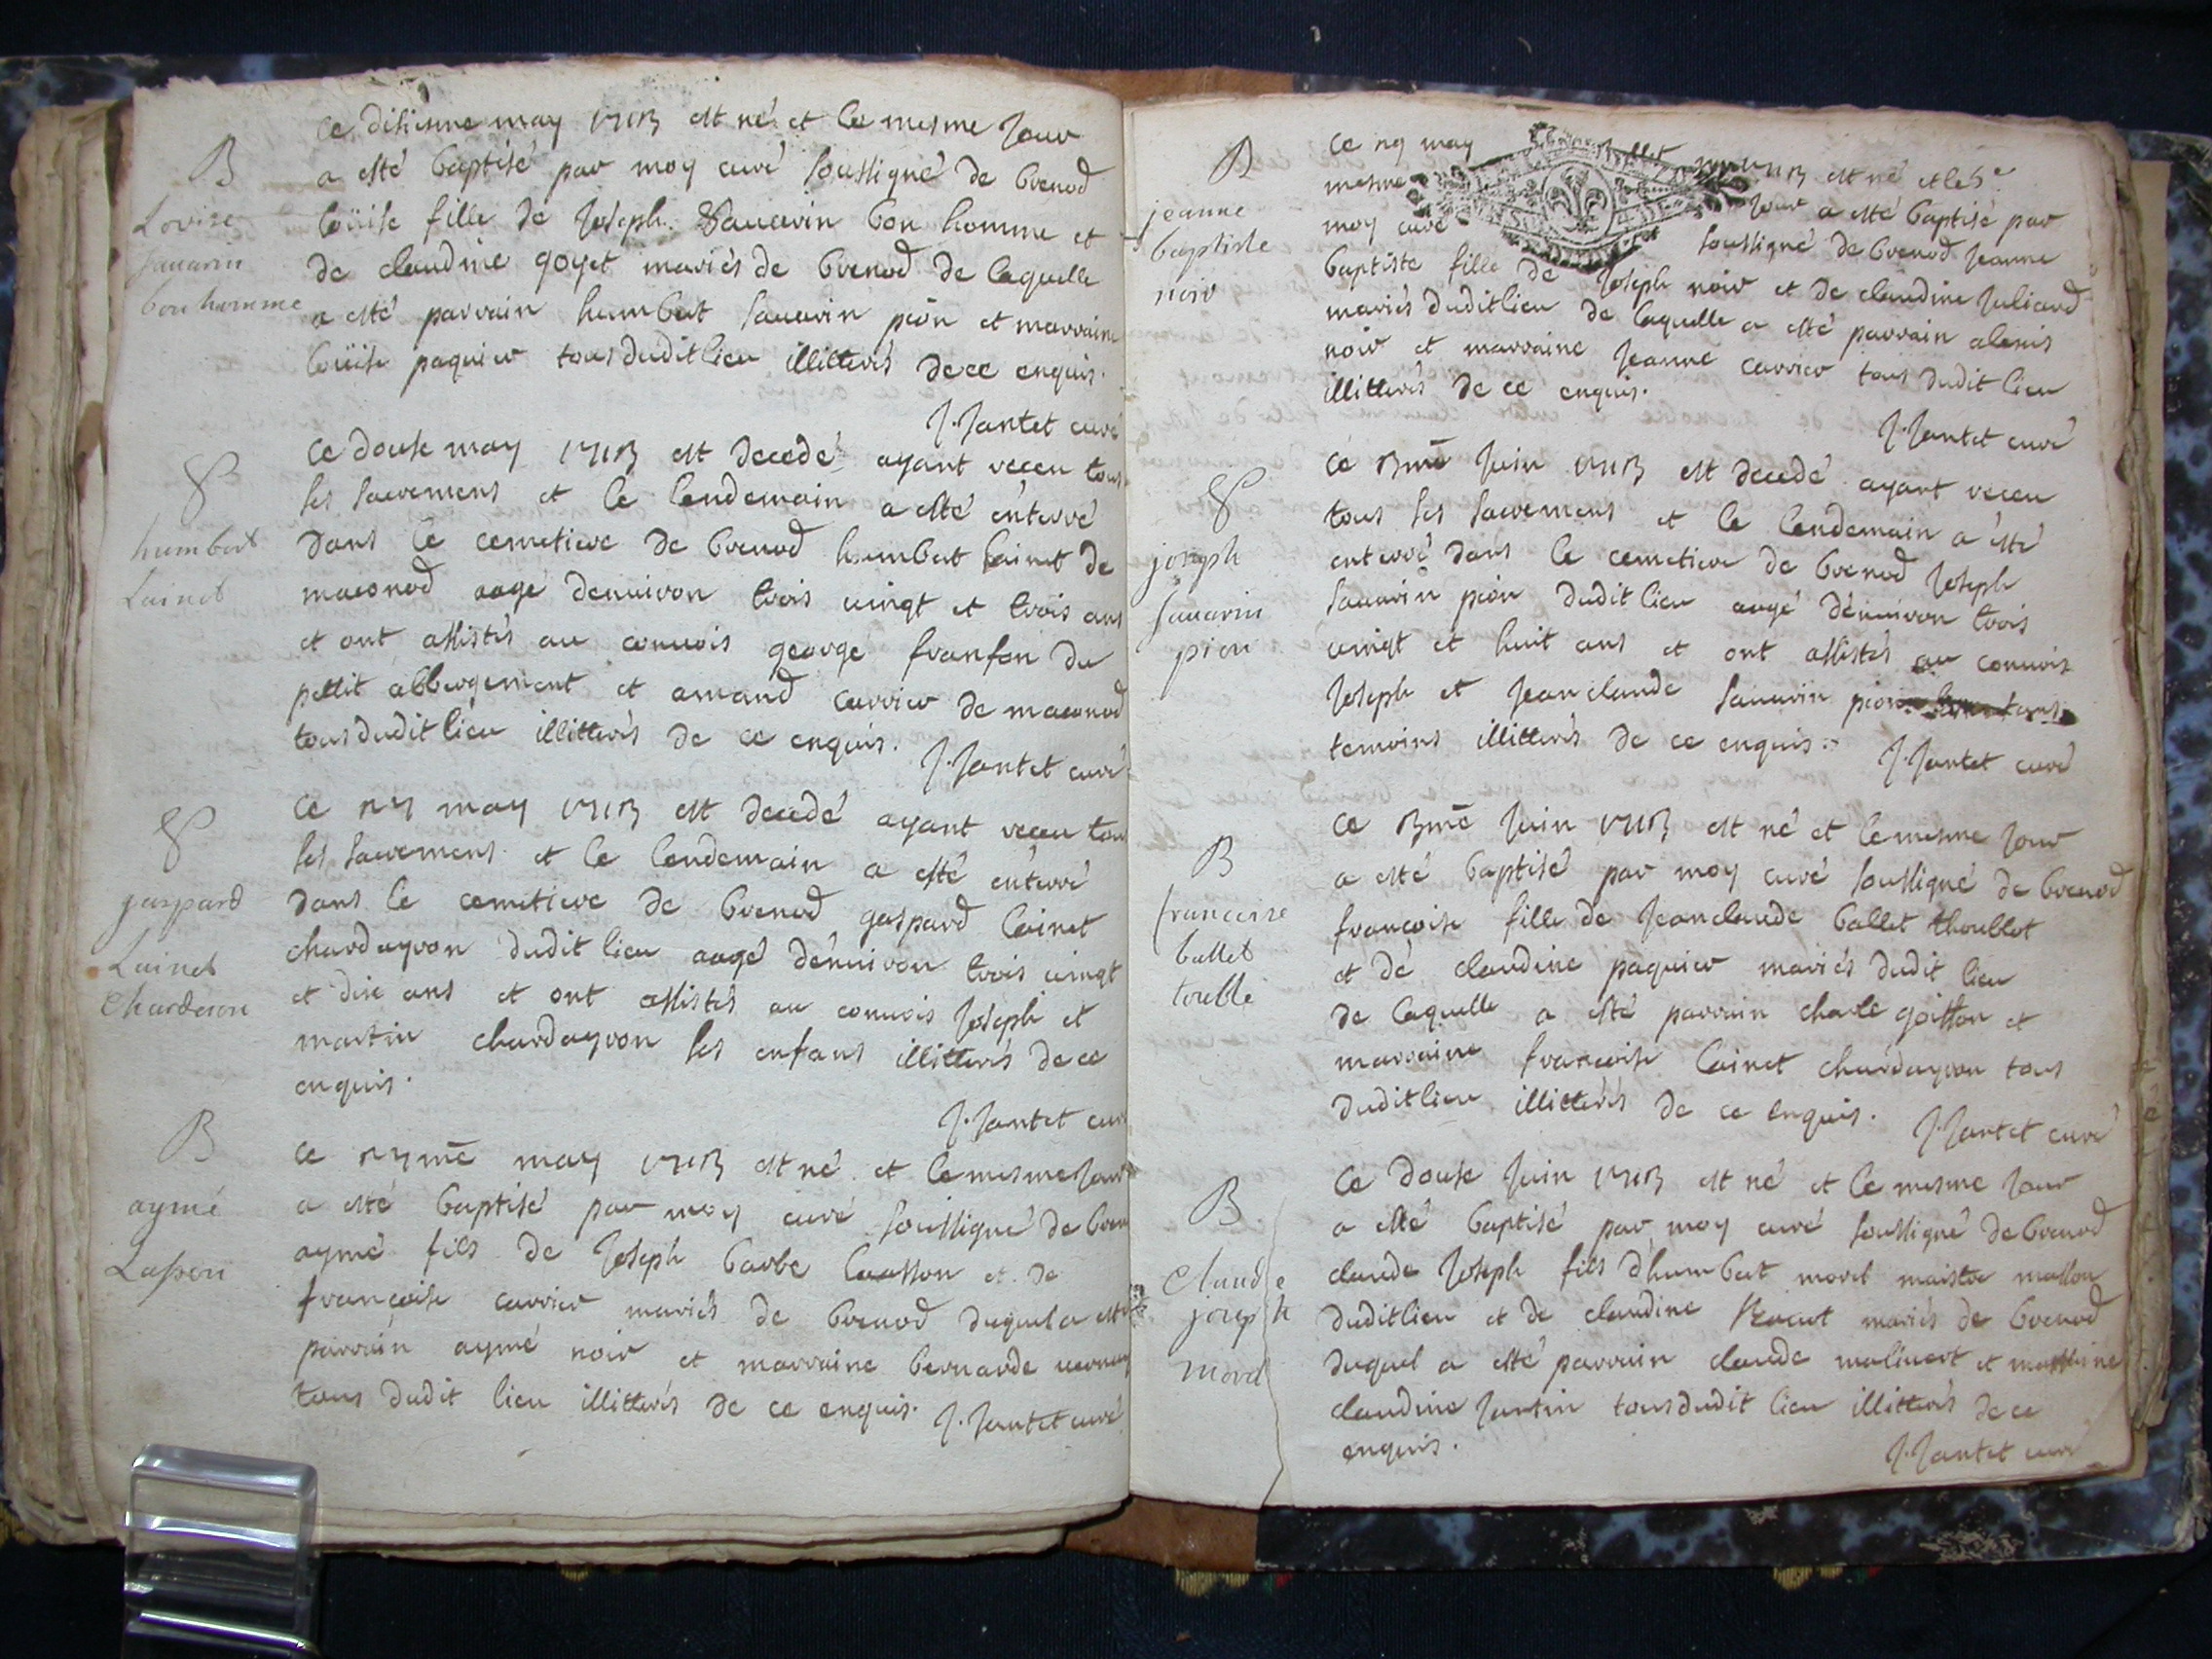 B
Lovise
sauarin
bon homme
Ce disieme may 1713 est né et le mesme jour
a esté baptisé par moy curé soussigné de brenod
loüise fille de joseph Sauarin bon homme et
de claudine goyet mariés de brenod de laquelle
a esté parrain humbert sauarin pion et marraine
loüise paquier tous dudit lieu illitterés de ce enquis.
J. Jantet curé
humbert
Lainet
Ce douse may 1713 est decedé ayant receu tous
ses sacremens et le lendemain a esté enterré
dans le cemetiere de brenod humbert lainet de
maconod aagé denuiron trois uingt et trois ans
et ont assistés au conuois george franson du
pettit abbergement et amand carrier de maconod
tous dudit lieu illitterés de ce enquis.
J. Jantet curé
gaspard
Lainet
Charderon
Ce may 1713 est decedé ayant receu tous
ses sacremens et le lendemain a esté enterré
dans le cemetiere de brenod gaspard lainet
chardayron dudit lieu aagé dénuiron trois uingt
et dix ans et ont assistés au conuois joseph et
martin chardayron ses enfans illitterés de ce
enquis.
J. Jantet curé
B
aymé
Lasson
Ce may 1713 est né et le mesme jour
a esté baptisé par moy curé soussigné de bren
aymé fils de joseph barbe lasson et de
francoise carrier mariés de brenod duquel a esté
parrain aymé noir et marraine bernarde
tous dudit lieu illitterés de ce enquis. J. Jantet curé
B
jeanne
baptiste
noir
Ce may 1713 est né et le
mesme jour a esté baptisé par
moy curé soussigné de brenod jeanne
baptiste fille de joseph noir et de claudine juliard
mariés dudit lieu de laquelle a esté parrain alexis
noir et marraine jeanne carrier tous dudit lieu
illitterés de ce enquis.
J. Jantet curé
joseph
sauarin
pion
Ce 3me juin 1713 est decedé ayant receu
tous ses sacremens et le lendemain a esté
enterré dans le cemetiere de brenod joseph
sauarin pion dudit lieu aagé dénuiron trois
uingt et huit ans et ont assistés au conuois
joseph et jean claude sauarin pion
temoins illitterés de ce enquis. J. Jantet curé
B
francoise
ballet
toublé
Ce 3me juin 1713 est né et le mesme jour
a esté baptisé par moy curé soussigné de brenod
francoise fille de jean claude ballet thoublot
et de claudine paquier mariés dudit lieu
de laquelle a esté parrain charle goisson et
marraine francoise lainet chardayron tous
dudit lieu illitterés de ce enquis.
J. Jantet curé
B
Claude
joseph
morel
Ce douse juin 1713 est né et le mesme jour
a esté baptisé par moy curé soussigné de brenod
claude joseph fils d'humbert morel maistre masson
dudit lieu et de claudine mariés de brenod
duquel a esté parrain claude maliuert et marraine
claudine jantin tous dudit lieu illitterés de ce
enquis.
J. Jantet curé